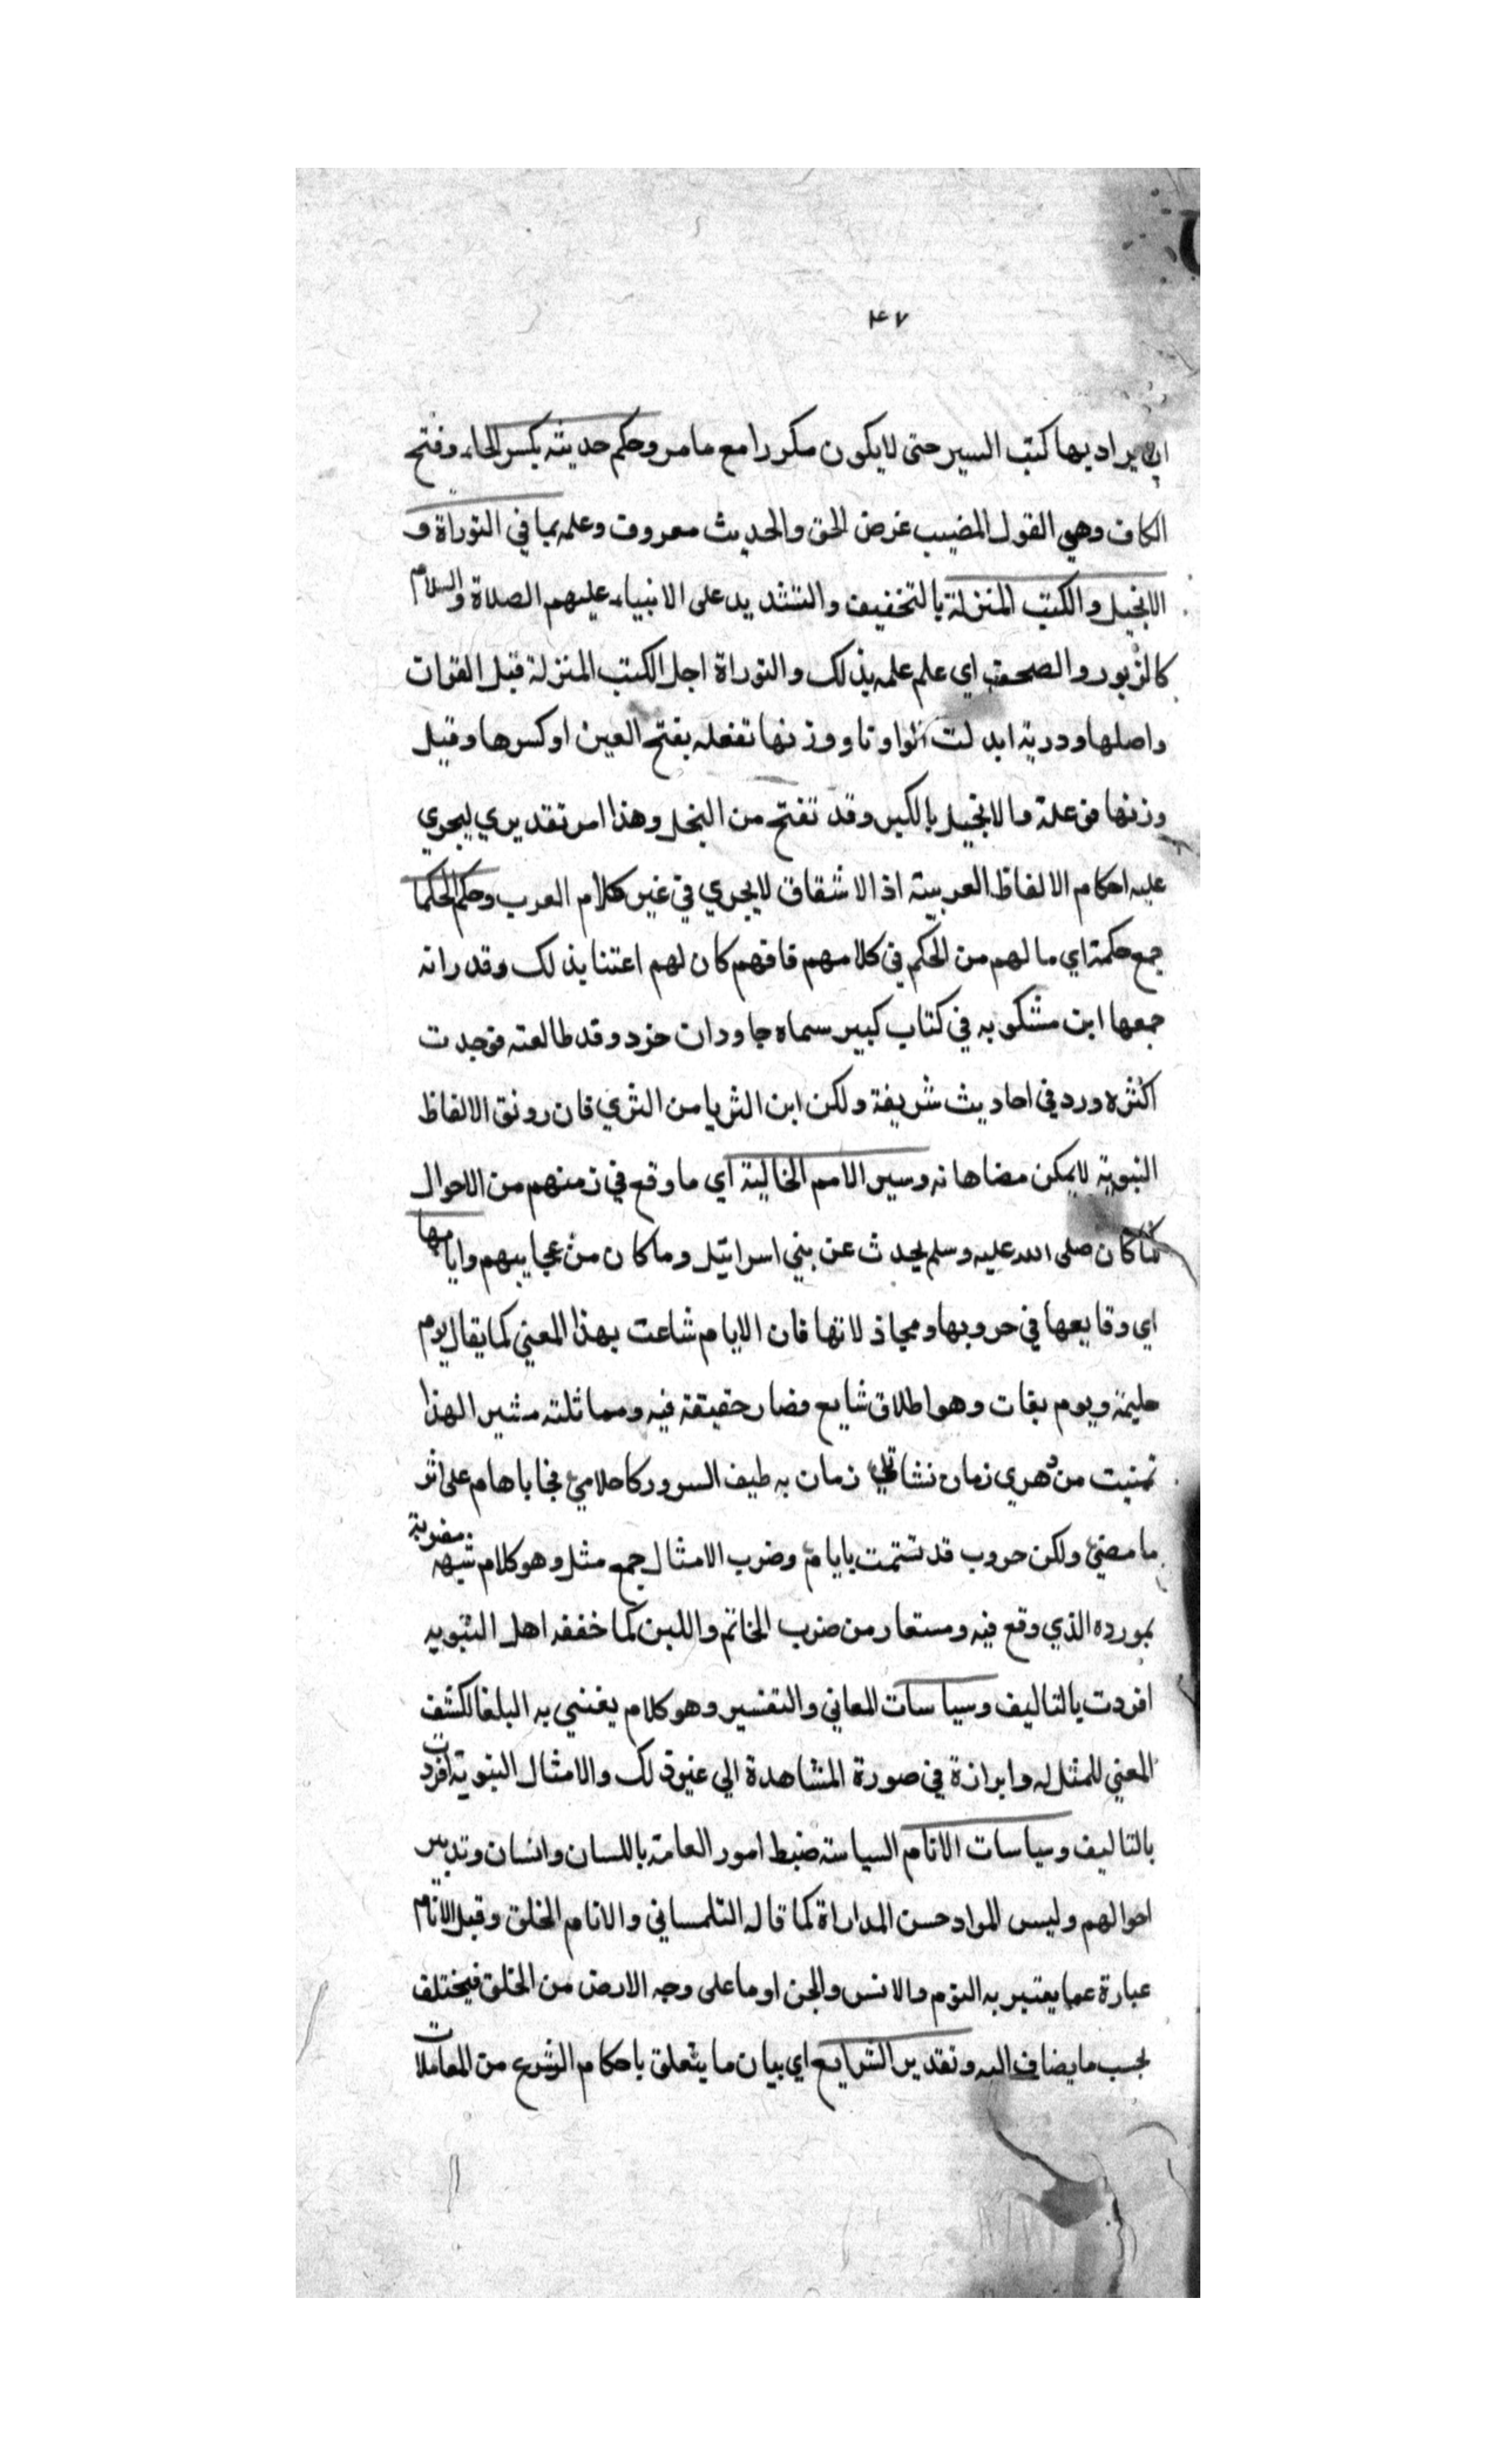 ٤٧
ان يراد بها كتب السير حتى لايكون مكررا مع مامر وحكم حديثه بكسر الحاء وفتح
الكاف وهي القول المصيب غرض الحق والحديث معروف وعلمه بما في التوراة و
الانجيل والكتب المنزلة بالتخفيف والتشديد على الانبياء عليهم الصلاة والسلام
كالزبور والصحف اي علم علمه بذلك والتوراة اجل الكتب المنزلة قبل القران
واصلها وورية ابدلت الواو تا ووزنها تفعله بفتح العين او كسرها وقيل
وزنها فوعلة والانجيل بالكسر وقد تفتح من النجل وهذا امر تقديري ليجري
عليه احكام الالفاظ العربية اذ الاشقاق لايجري في غير كلام العرب وحكم الحكما
جمع حكمة اي ما لهم من الحكم في كلامهم فافهم كان لهم اعتنا بذلك وقد رانه
جمعها ابن مشكويه في كتاب كبير سماه جاودان خرد وقد طالعته فوجدت
اكثره ورد في احاديث شريفة ولكن اين الثريا من الثري فان رونق الالفاظ
النبوية لايمكن مضاهاته وسير الامم الخالية اي ما وقع في زمنهم من الاحوال
كان صلى الله عليه وسلم يحدث عن بني اسرائيل وماكان من عجايبهم وايامها
اي وقايعها في حروبها ومجاذلاتها فان الايام شاعت بهذا المعني كما يقال يوم
حليمة ويوم بعاث وهو اطلاق شايع فصار حقيقة فيه ومما ثلته مشيرا لهذا
تمنيت من دهري زمان نشاتي زمان به طيف السرور كاحلامي فجا باهام على اثر
ما مضي ولكن حروب قد تسمت بايام وضرب الامثال جمع مثل وهو كلام شبه مضربة
بمورده الذي وقع فيه ومستعار من ضرب الخاتم واللبن كما خففه اهل النبويه
افردت بالتاليف وسياسات المعاني والتفسير وهو كلام يعتني به البلغا لكشف
المعني للمثل له وابرازة في صورة المشاهدة الي غير ذلك والامثال النبوية افردت
بالتاليف وسياسات الانام السياسة ضبط امور العامة باللسان وانسان وتدبير
احوالهم وليس المراد حسن المداراة كما قاله التلمساني والانام الخلق وقيل الانام
عبارة عما يعتبر به النوم والانس والجن او ما على وجه الارض من الخلق فيختلف
بحسب مايضاف اليه وتقدير الشرايع اي بيان ما يتعلق باحكام الشرع من المعاملات